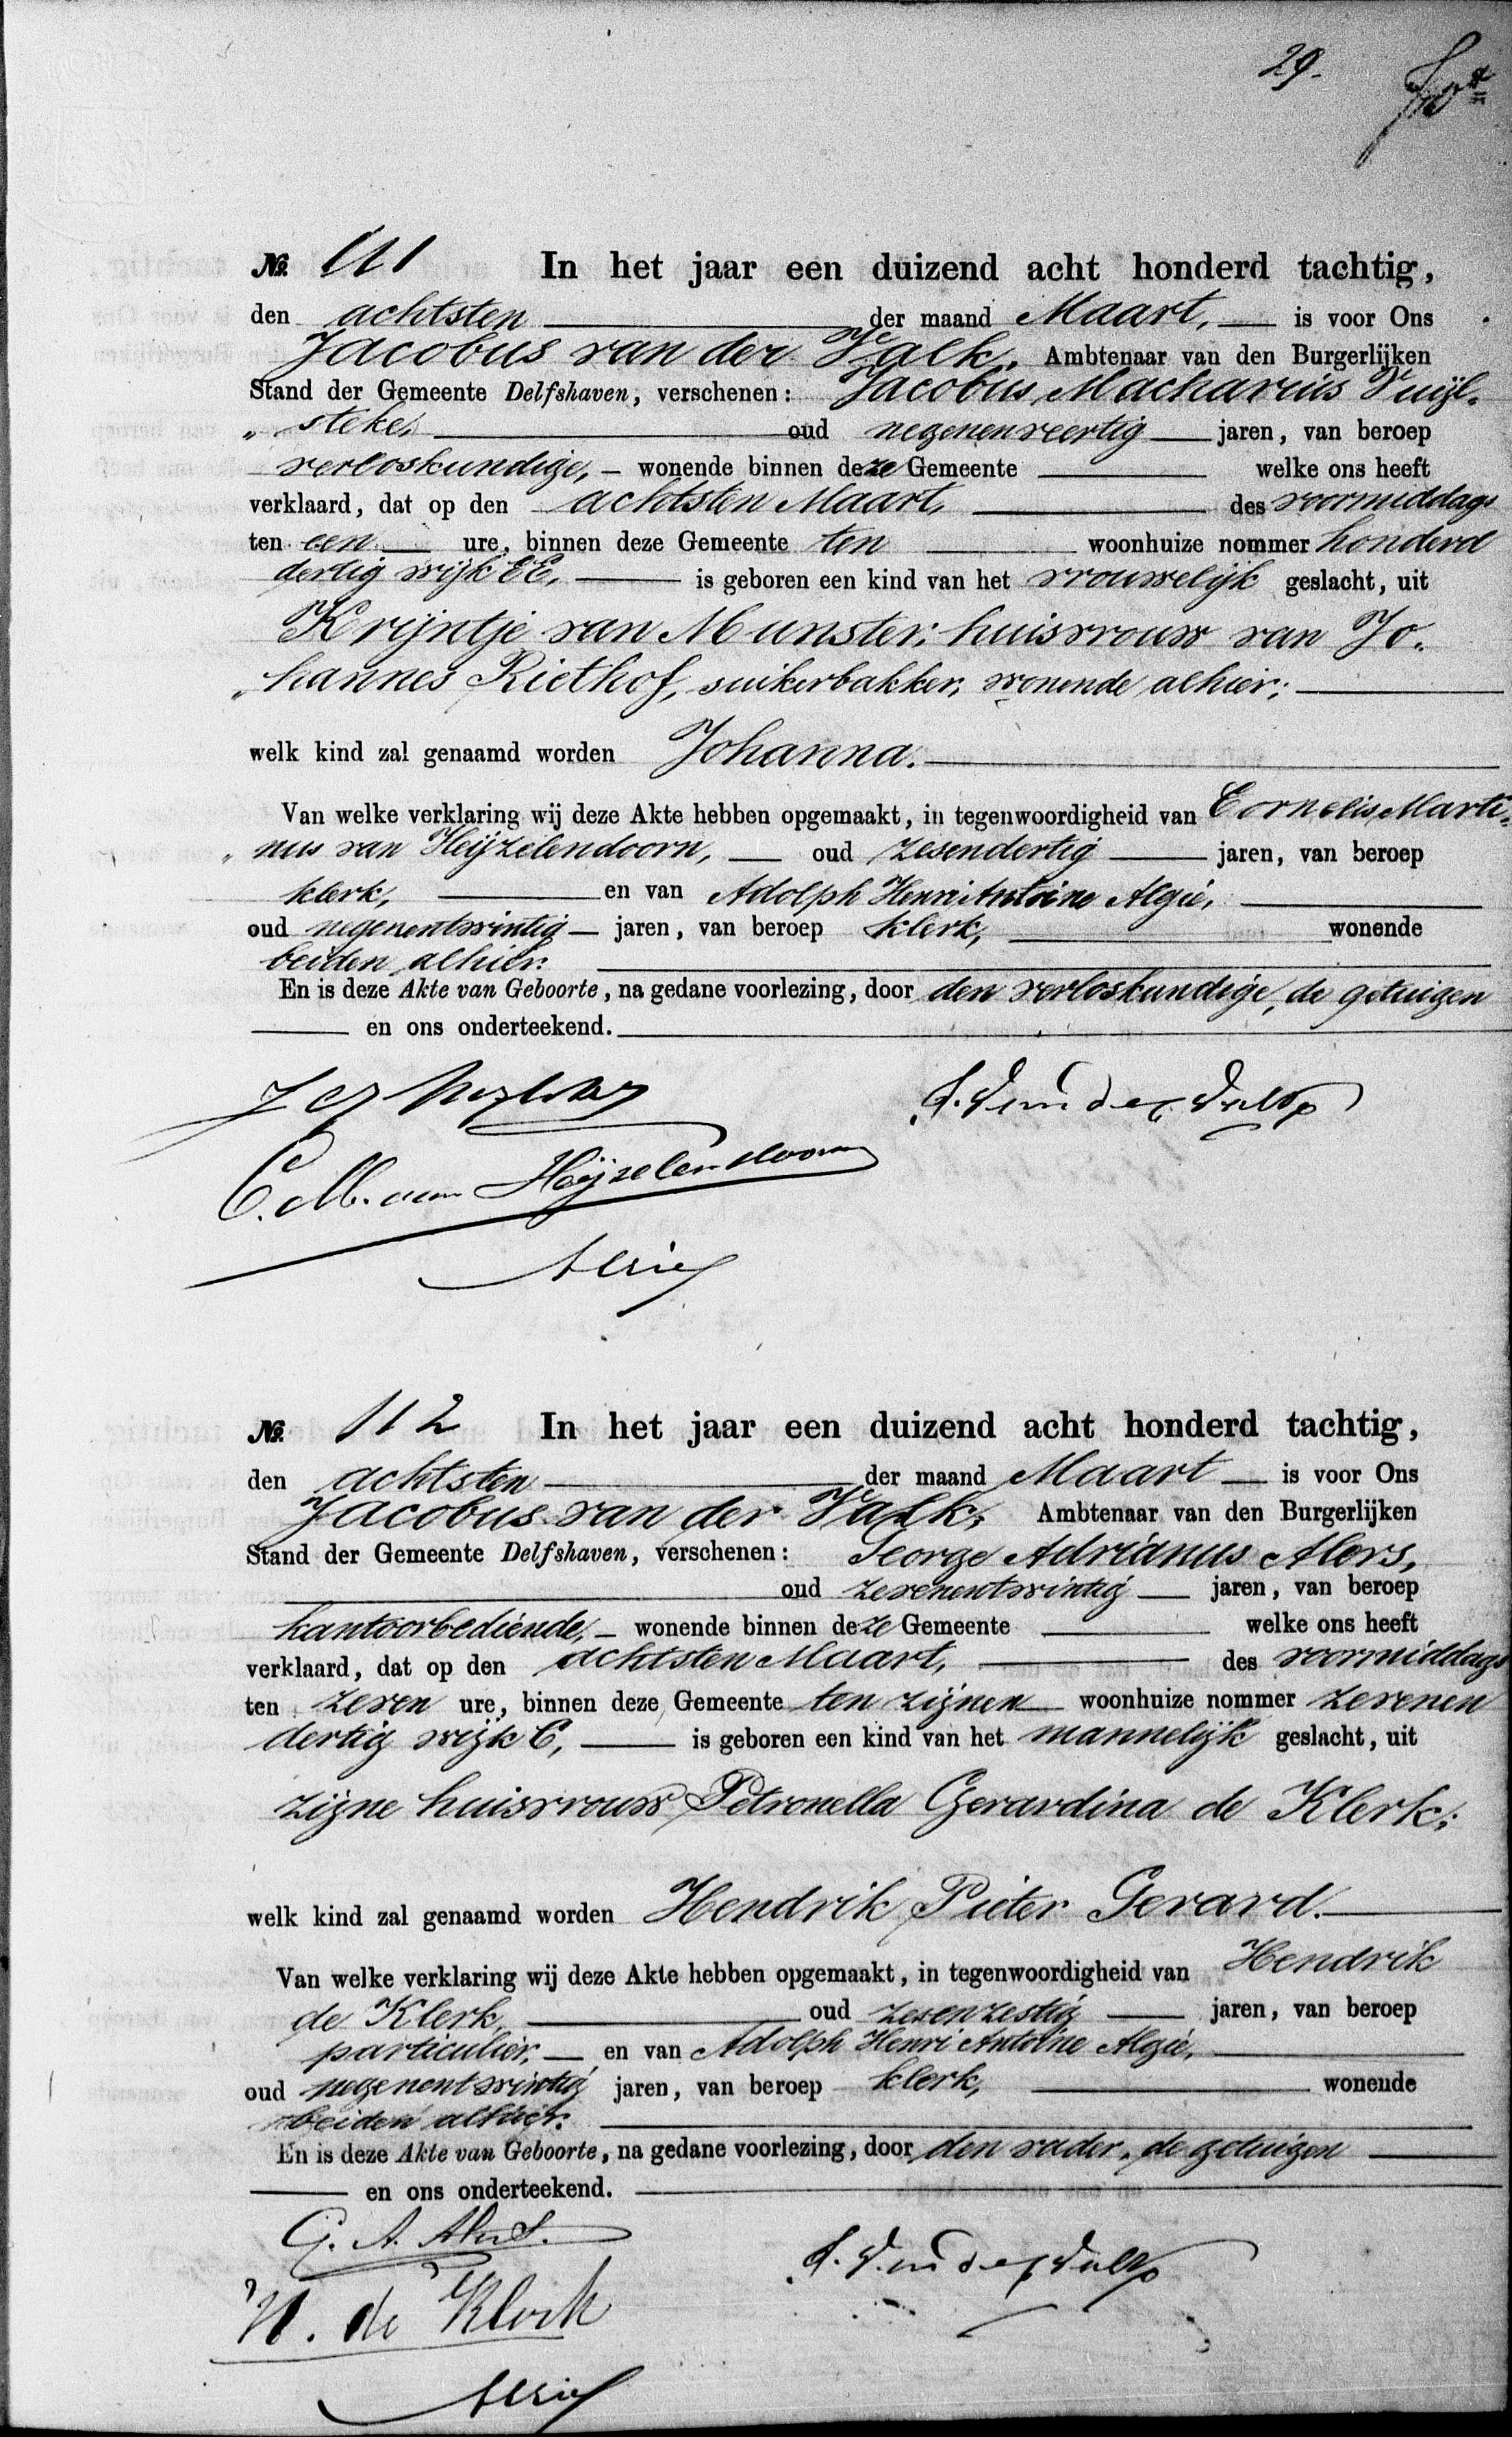 29.
No. 111 In het jaar een duizend acht honderd tachtig,
den achtsten der maand Maart, is voor Ons
Jacobus van der Valk, Ambtenaar van den Burgerlijken
Stand der Gemeente Delfshaven, verschenen: Jacobus Macharius Vuijl-
„ steke, oud negenenveertig jaren, van beroep
verloskundige, – wonende binnen deze Gemeente welke ons heeft
verklaard, dat op den achtsten Maart, des voormiddags
ten een ure, binnen deze Gemeente ten woonhuize nommer honderd
dertig wijk EE, is geboren een kind van het vrouwelijk geslacht, uit
Krijntje van Munster, huisvrouw van Jo-
„ hannes Riethof, suikerbakker, wonende alhier;
welk kind zal genaamd worden Johanna.
Van welke verklaring wij deze Akte hebben opgemaakt, in tegenwoordigheid van Cornelis Marti-
„ nus van Heijzelendoorn, oud zesendertig jaren, van beroep
klerk, en van Adolph Henri Antoine Algie,
oud negenentwintig jaren, van beroep klerk, wonende
beiden alhier.
En is deze Akte van Geboorte, na gedane voorlezing, door den verloskundige, de getuigen
en ons onderteekend.
J. van der Valk
C. M. van Heijzelendoorn
Algie
No. 112 In het jaar een duizend acht honderd tachtig,
den achtsten der maand Maart is voor Ons
Jacobus van der Valk, Ambtenaar van den Burgerlijken
Stand der Gemeente Delfshaven, verschenen: George Adrianus Alers,
oud zevenentwintig jaren, van beroep
kantoorbediende, – wonende binnen deze Gemeente welke ons heeft
verklaard, dat op den achtsten Maart, des voormiddags
ten zeven ure, binnen deze Gemeente ten zijnen woonhuize nommer zevenen
dertig wijk C, is geboren een kind van het mannelijk geslacht, uit
zijne huisvrouw Petronella Gerardina de Klerk;
welk kind zal genaamd worden Hendrik Pieter Gerard.
Van welke verklaring wij deze Akte hebben opgemaakt, in tegenwoordigheid van Hendrik
de Klerk, oud jaren, van beroep
particulier, en van Adolph Henri Antoine Algie,
oud negenentwintig jaren, van beroep klerk, wonende
beiden alhier.
En is deze Akte van Geboorte, na gedane voorlezing, door den vader, de getuigen
en ons onderteekend.
G. A. Alers.
J. van der Valk
H. de Klerk
Algie